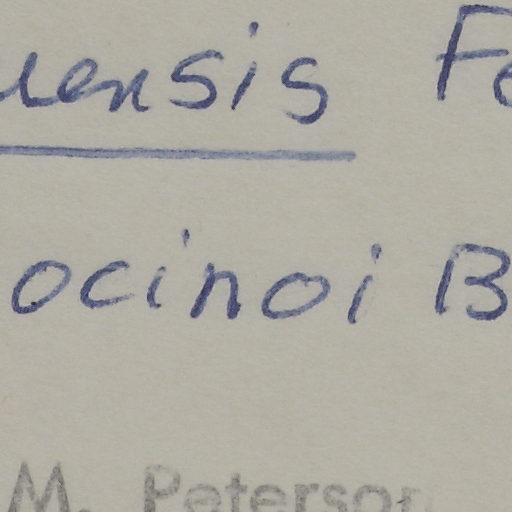 uensis Fe
ocinoi B
M. Peterson